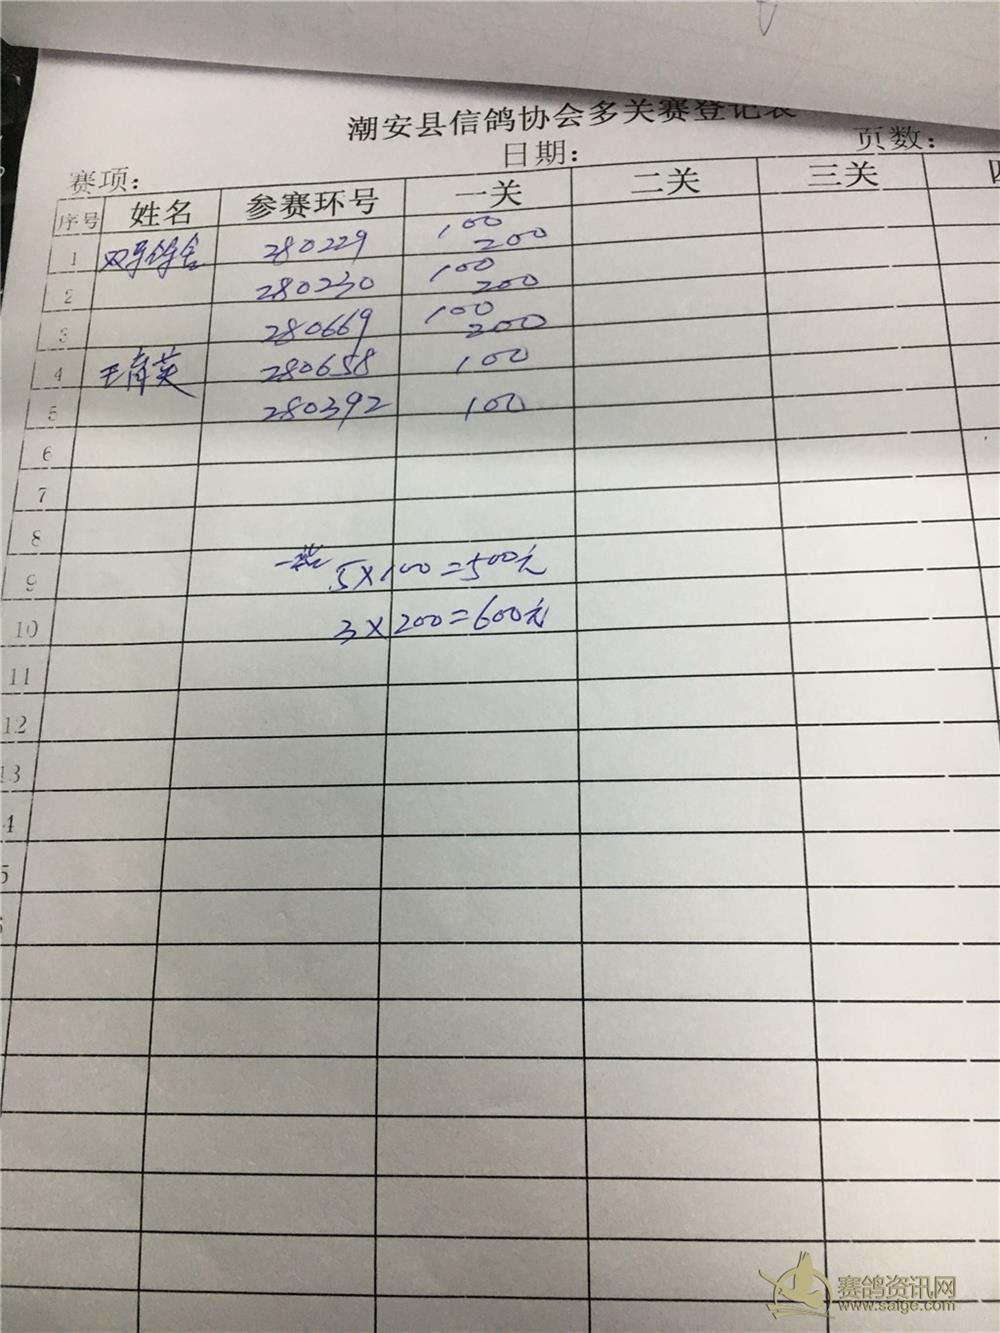 潮安县信鸽协会多关赛登记表
赛项： 日期： 页数：
序号 姓名 参赛环号 一关 二关 三关 四
1 280229 100 200
2 280230 100 200
3 280669 100 200
4 280658 100
5 280392 100
6
7
8
9 5×100=500元
10 3×200=600元
11
12
13
4
5
赛鸽资讯网
www.saige.com